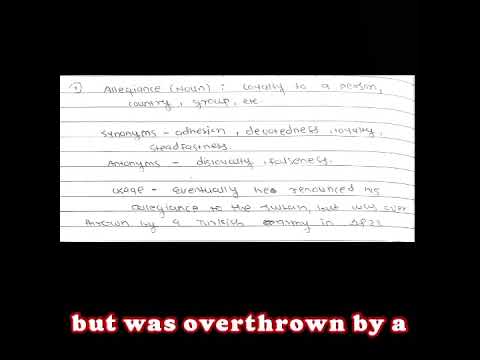 Allegiance (Noun) : Loyalty to a person,
country, group, etc.
Synonyms - adhesion, devotedness, loyalty,
steadfastness.
Antonyms - disloyalty, falseness.
Usage - Eventually he renounced his
allegiance to the sultan, but was over
thrown by a Turkish army in
but was overthrown by a